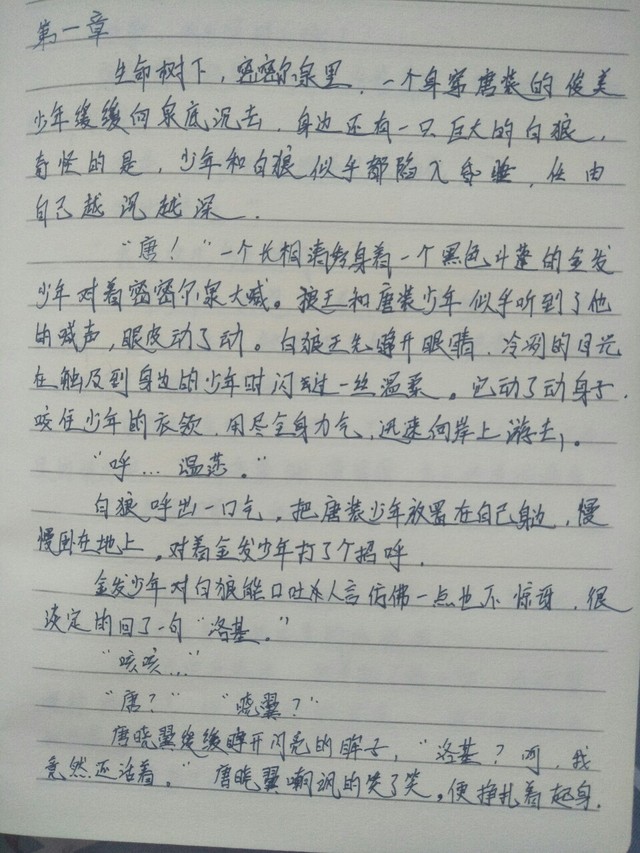 第一章
生命树下，密密尔泉里，一个身穿唐装的俊美
少年缓缓向泉底沉去，身边还有一只巨大的白狼，
奇怪的是，少年和白狼似乎都陷入昏睡，任由
自己越沉越深．
“唐！”一个长相清秀身着一个黑色斗篷的金发
少年对着密密尔泉大喊。狼王和唐装少年似乎听到了他
的喊声，眼皮动了动。白狼王先睁开眼睛，冷冽的目光
在触及到身边的少年时闪过一丝温柔。它动了动身子，
咬住少年的衣领，用尽全身力气，迅速向岸上游去。
“呼…温莎。”
白狼呼出一口气，把唐装少年放置在自己身边，慢
慢卧在地上，对着金发少年打了个招呼．
金发少年对白狼能口吐人言仿佛一点也不惊讶，很
淡定的回了一句“洛基。”
“咳咳…”
“唐？”“晓翼？”
唐晓翼缓缓睁开闪亮的眸子，“洛基？呵，我
竟然还活着。”唐晓翼嘲讽的笑了笑，便挣扎着起身．